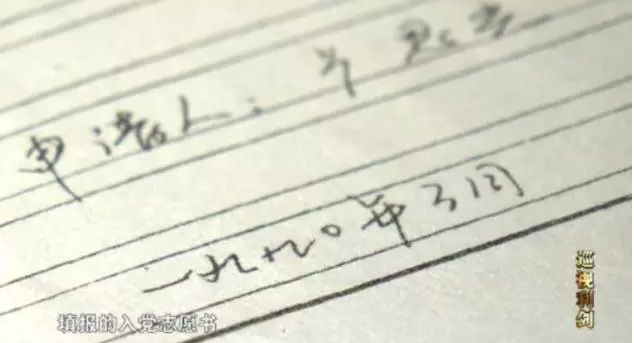 申请人：
一九九〇年3月
填报的入党志愿书
巡视利剑